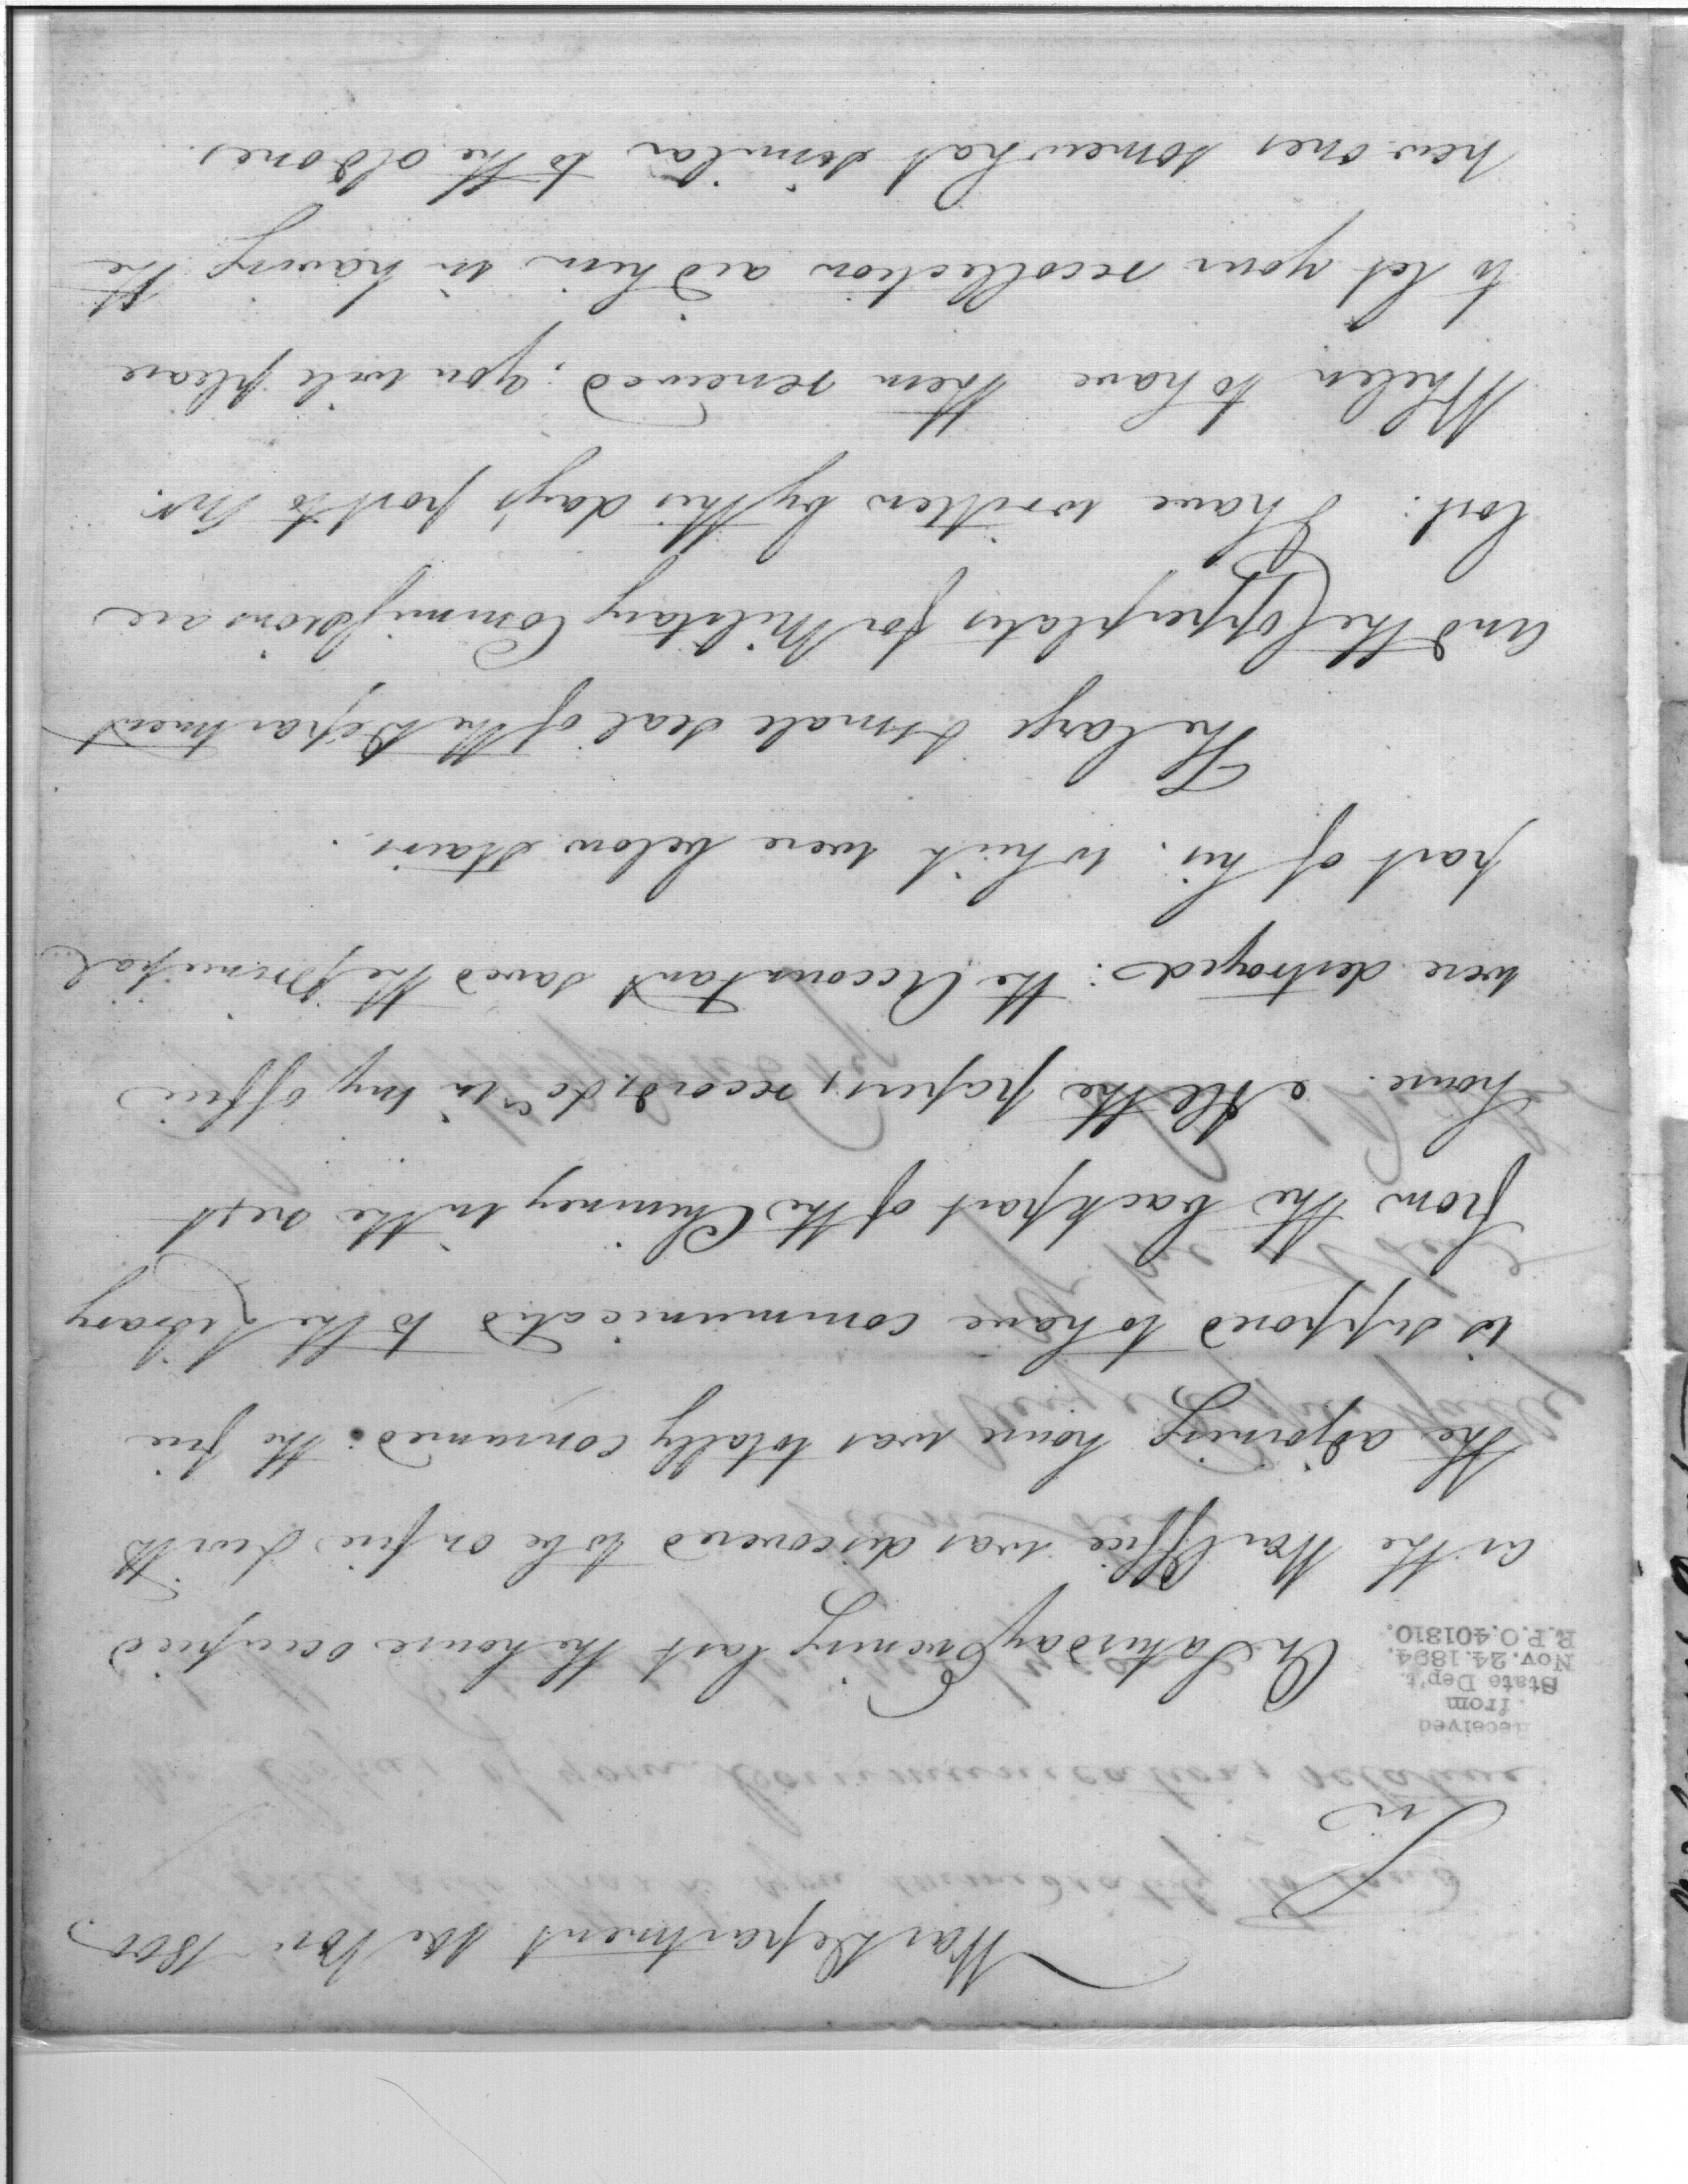 War Department Nov. 1800
Sir
Received
from
State Dep't.
Nov. 24. 1894.
R.P.O. 401810.
On Saturday Evening last the house occupied
as the War Office was discovered to be on fire & with
the adjoining house was totally consumed: the fire
is supposed to have communicated to the Library
from the back part of the Chimney in the next
house. All the papers, records, &c in my office
were destroyed: the Accountant saved the principal
part of his. which were below stairs.
The large & small seal of the Department
and the Copperplates for Military Commissions are
lost. I have written by this day's post to Mr.
Whelen to have them renewed; you will please
to let your recollection aid him in having the
new ones somewhat similar to the old ones.